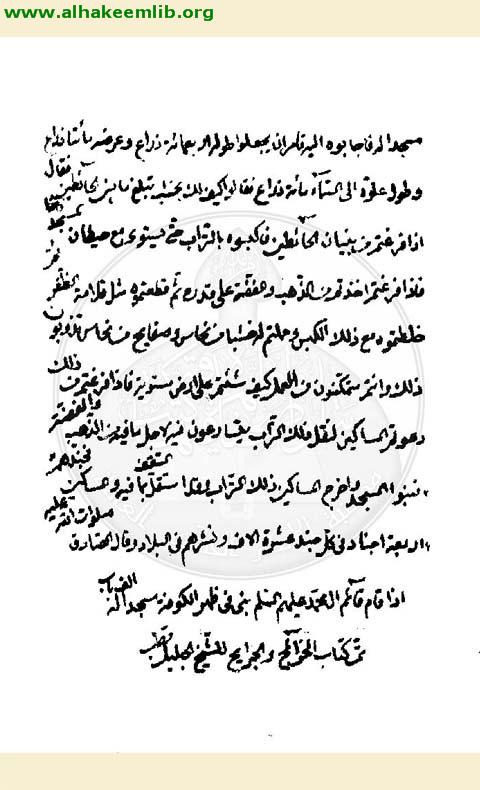 www.alhakeemlib.org
مسجدا له فاجابوه اليه فامر ان يجعلوا طوله اربعمائة ذراع وعرضه مأتا ذراع
وطول علوه الى السماء مأة ذراع فقالوا كيف لك بخشب تبلغ ما بين الحائطين فقال
اذا فرغتم من بنيان الحائطين فاكبسوه بالتراب حتى يستوى مع حيطان المسجد
فاذا فرغتم اخذتم من الذهب والفضة على قدره ثم قطعتموه مثل قلامة الظفر ثم
خلطتموه مع ذلك الكبس وحملتم له خشبا من نحاس وصفايح من نحاس تذوبون
ذلك وانتم متمكنون من العمل كيف شئتم على ارض مستوية فاذا فرغتم من ذلك
دعوتم المساكين لنقل ذلك التراب فيسارعون فيه لاجل ما فيه من الذهب والفضة
فبنوا المسجد واخرج المساكين ذلك التراب وقد استقل السقف بما فيه والمساكين فجندهم
اربعة اجناد في كل جند عشرة الاف ونشرهم في البلاد وقال الصادق صلوات الله عليه
اذا قام قائم ال محمد عليهم السلم بنى في ظهر الكوفة مسجدا له الف باب
تم كتاب الخرائج والجرايح للشيخ الجليل قطب